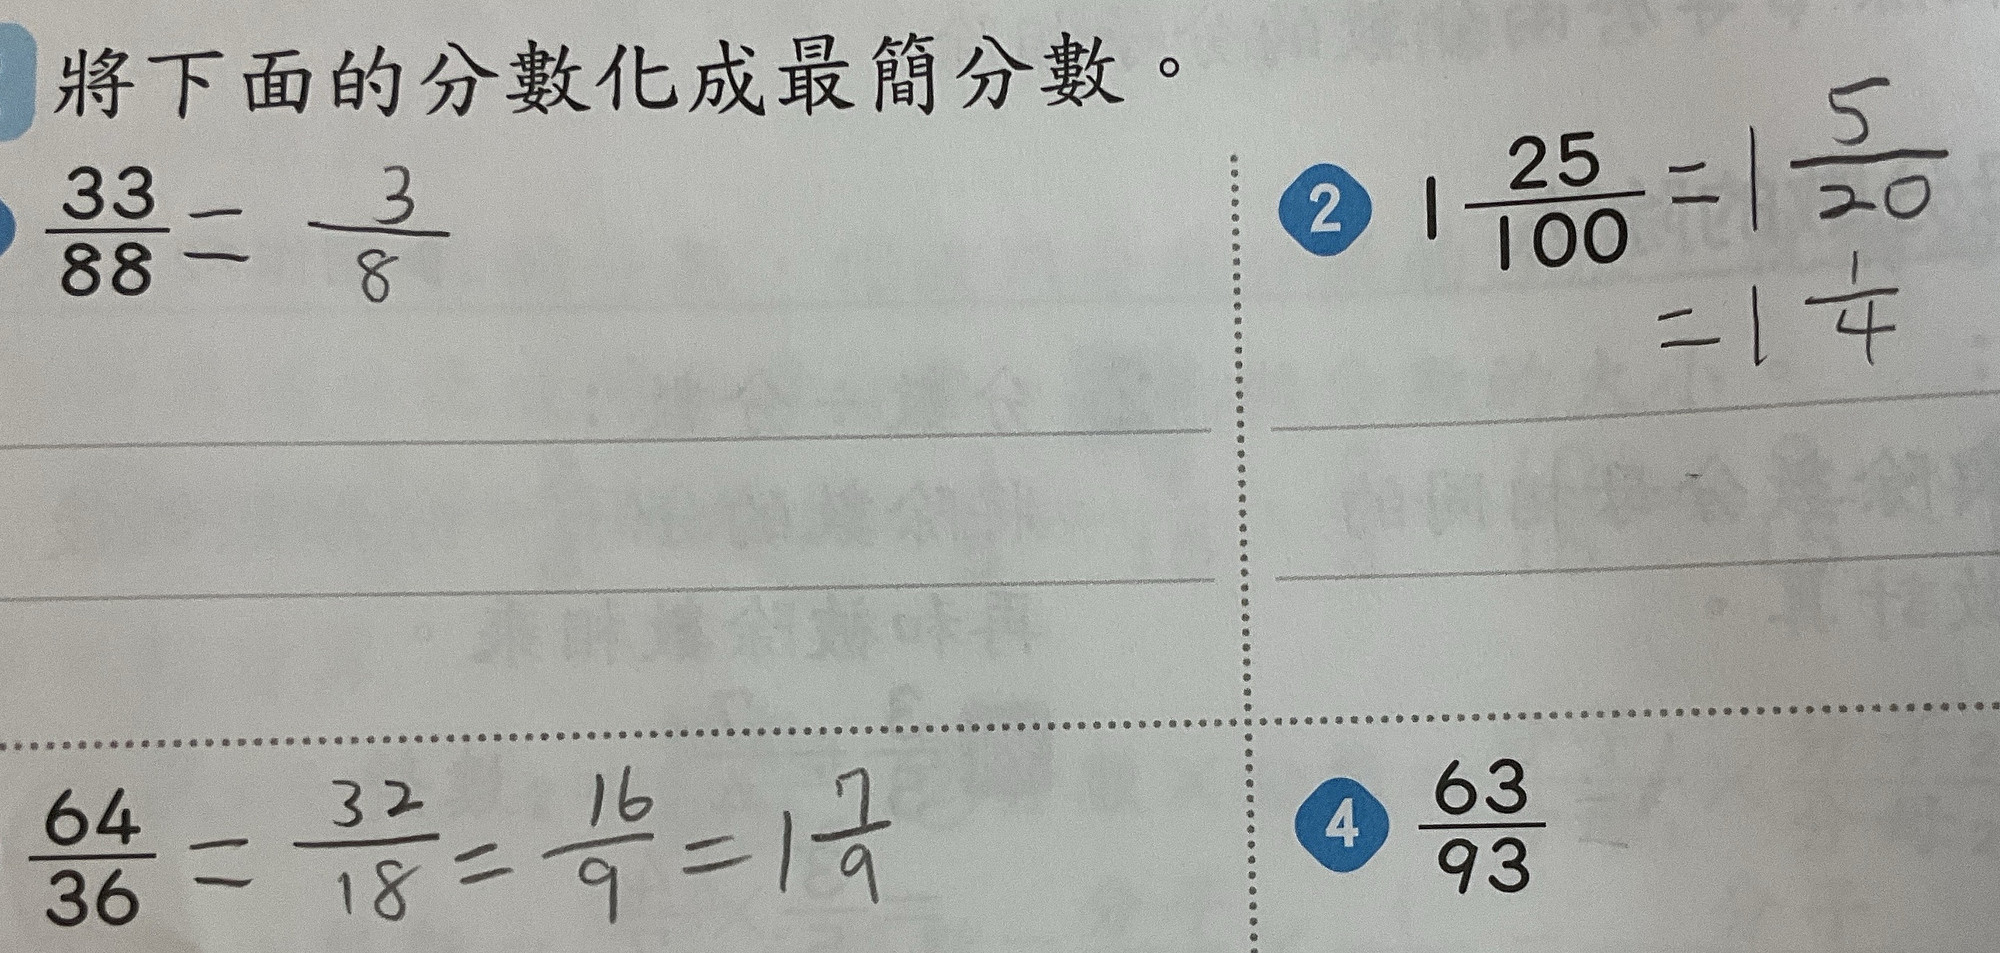 將下面的分數化成最簡分數。
33/88 = 3/8
2 1 25/100 = 1 5/20
= 1 1/4
64/36 = 32/18 = 16/9 = 1 7/9
4 63/93